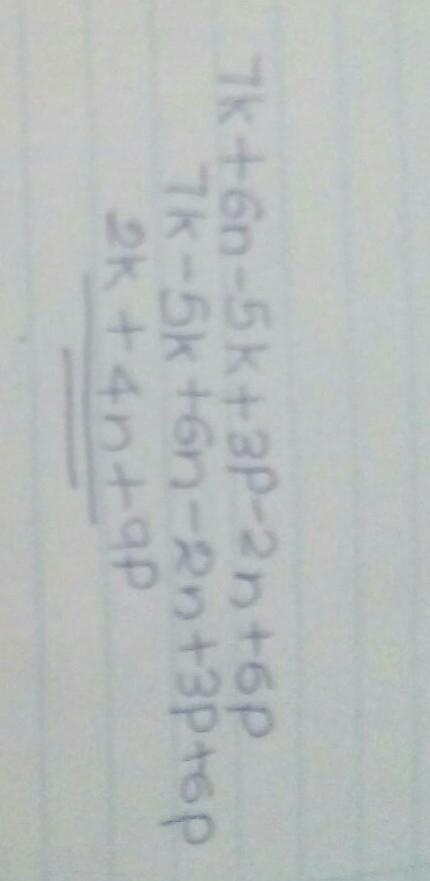 7k+6n-5k+3p-2n+6p
7k-5k+6n-2n+3p+6p
2k+4n+9p